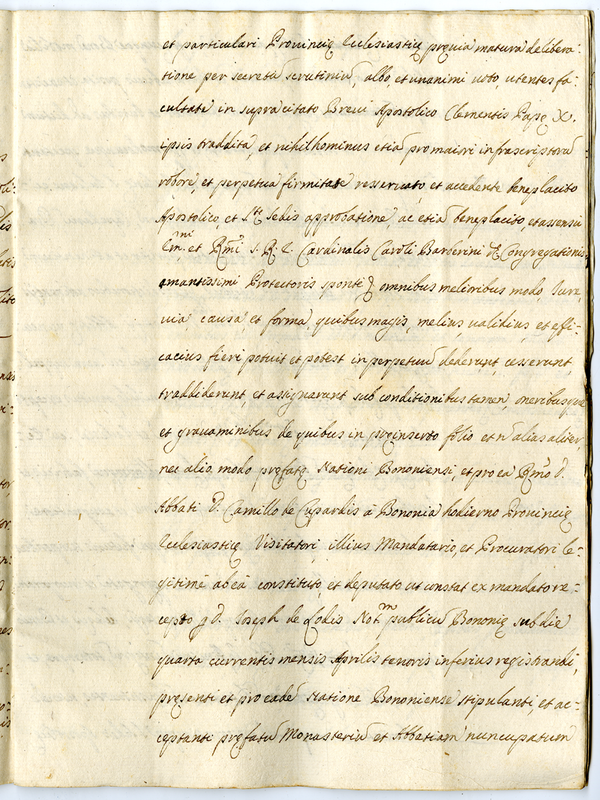 et particulari Provincię Ecclesiastię pręvia matura delibera-
tione per secretũ scrutiniũ, albo, et unanimi voto, utentes fa-
cultate in supracitato Brevi Apostolico Clementis Papę X.
ipsis traddita, et nihilhominus etiã pro maiori infrascriptorũ
robore, et perpetua firmitate reservato, et accedente beneplacito
Apostolico, et S.tę Sedis approbatione, ac etiã beneplacito, et assensu
Em.mi et Rm̃i S. R. E. Cardinalis Caroli Barberini Congregationis
amantissimi Protectoris sponte omnibus melioribus modo, Iure,
via causa et forma, quibus magis, melius, validius, et effi-
cacius fieri potuit et potest in perpetuũ dederunt, cesserunt,
traddiderunt, et assignarunt sub conditionibus tamen, oneribusque
et gravaminibus de quibus in pręinserto folio et nõ alias aliter,
nec alio modo pręfatę Nationi Bononiensi, et pro ea Rm̃o D.
Abbati D. Camillo de Cupardis à Bononia hodierno Provincię
Ecclesiastię Visitatori, illius Mandatario, et Procuratori le-
gitimè ab eã constituto, et deputato ut constat ex mandato re-
cepto p D. Joseph de Lodis Not.m publicũ Bononię sub die
quarta currentis mensis Aprilis tenoris inferius registrandi,
pręsenti et pro eadẽ Natione Bononiense stipulanti, et ac-
ceptanti pręfatũ Monasteriũ et Abbatiam nuncupatum